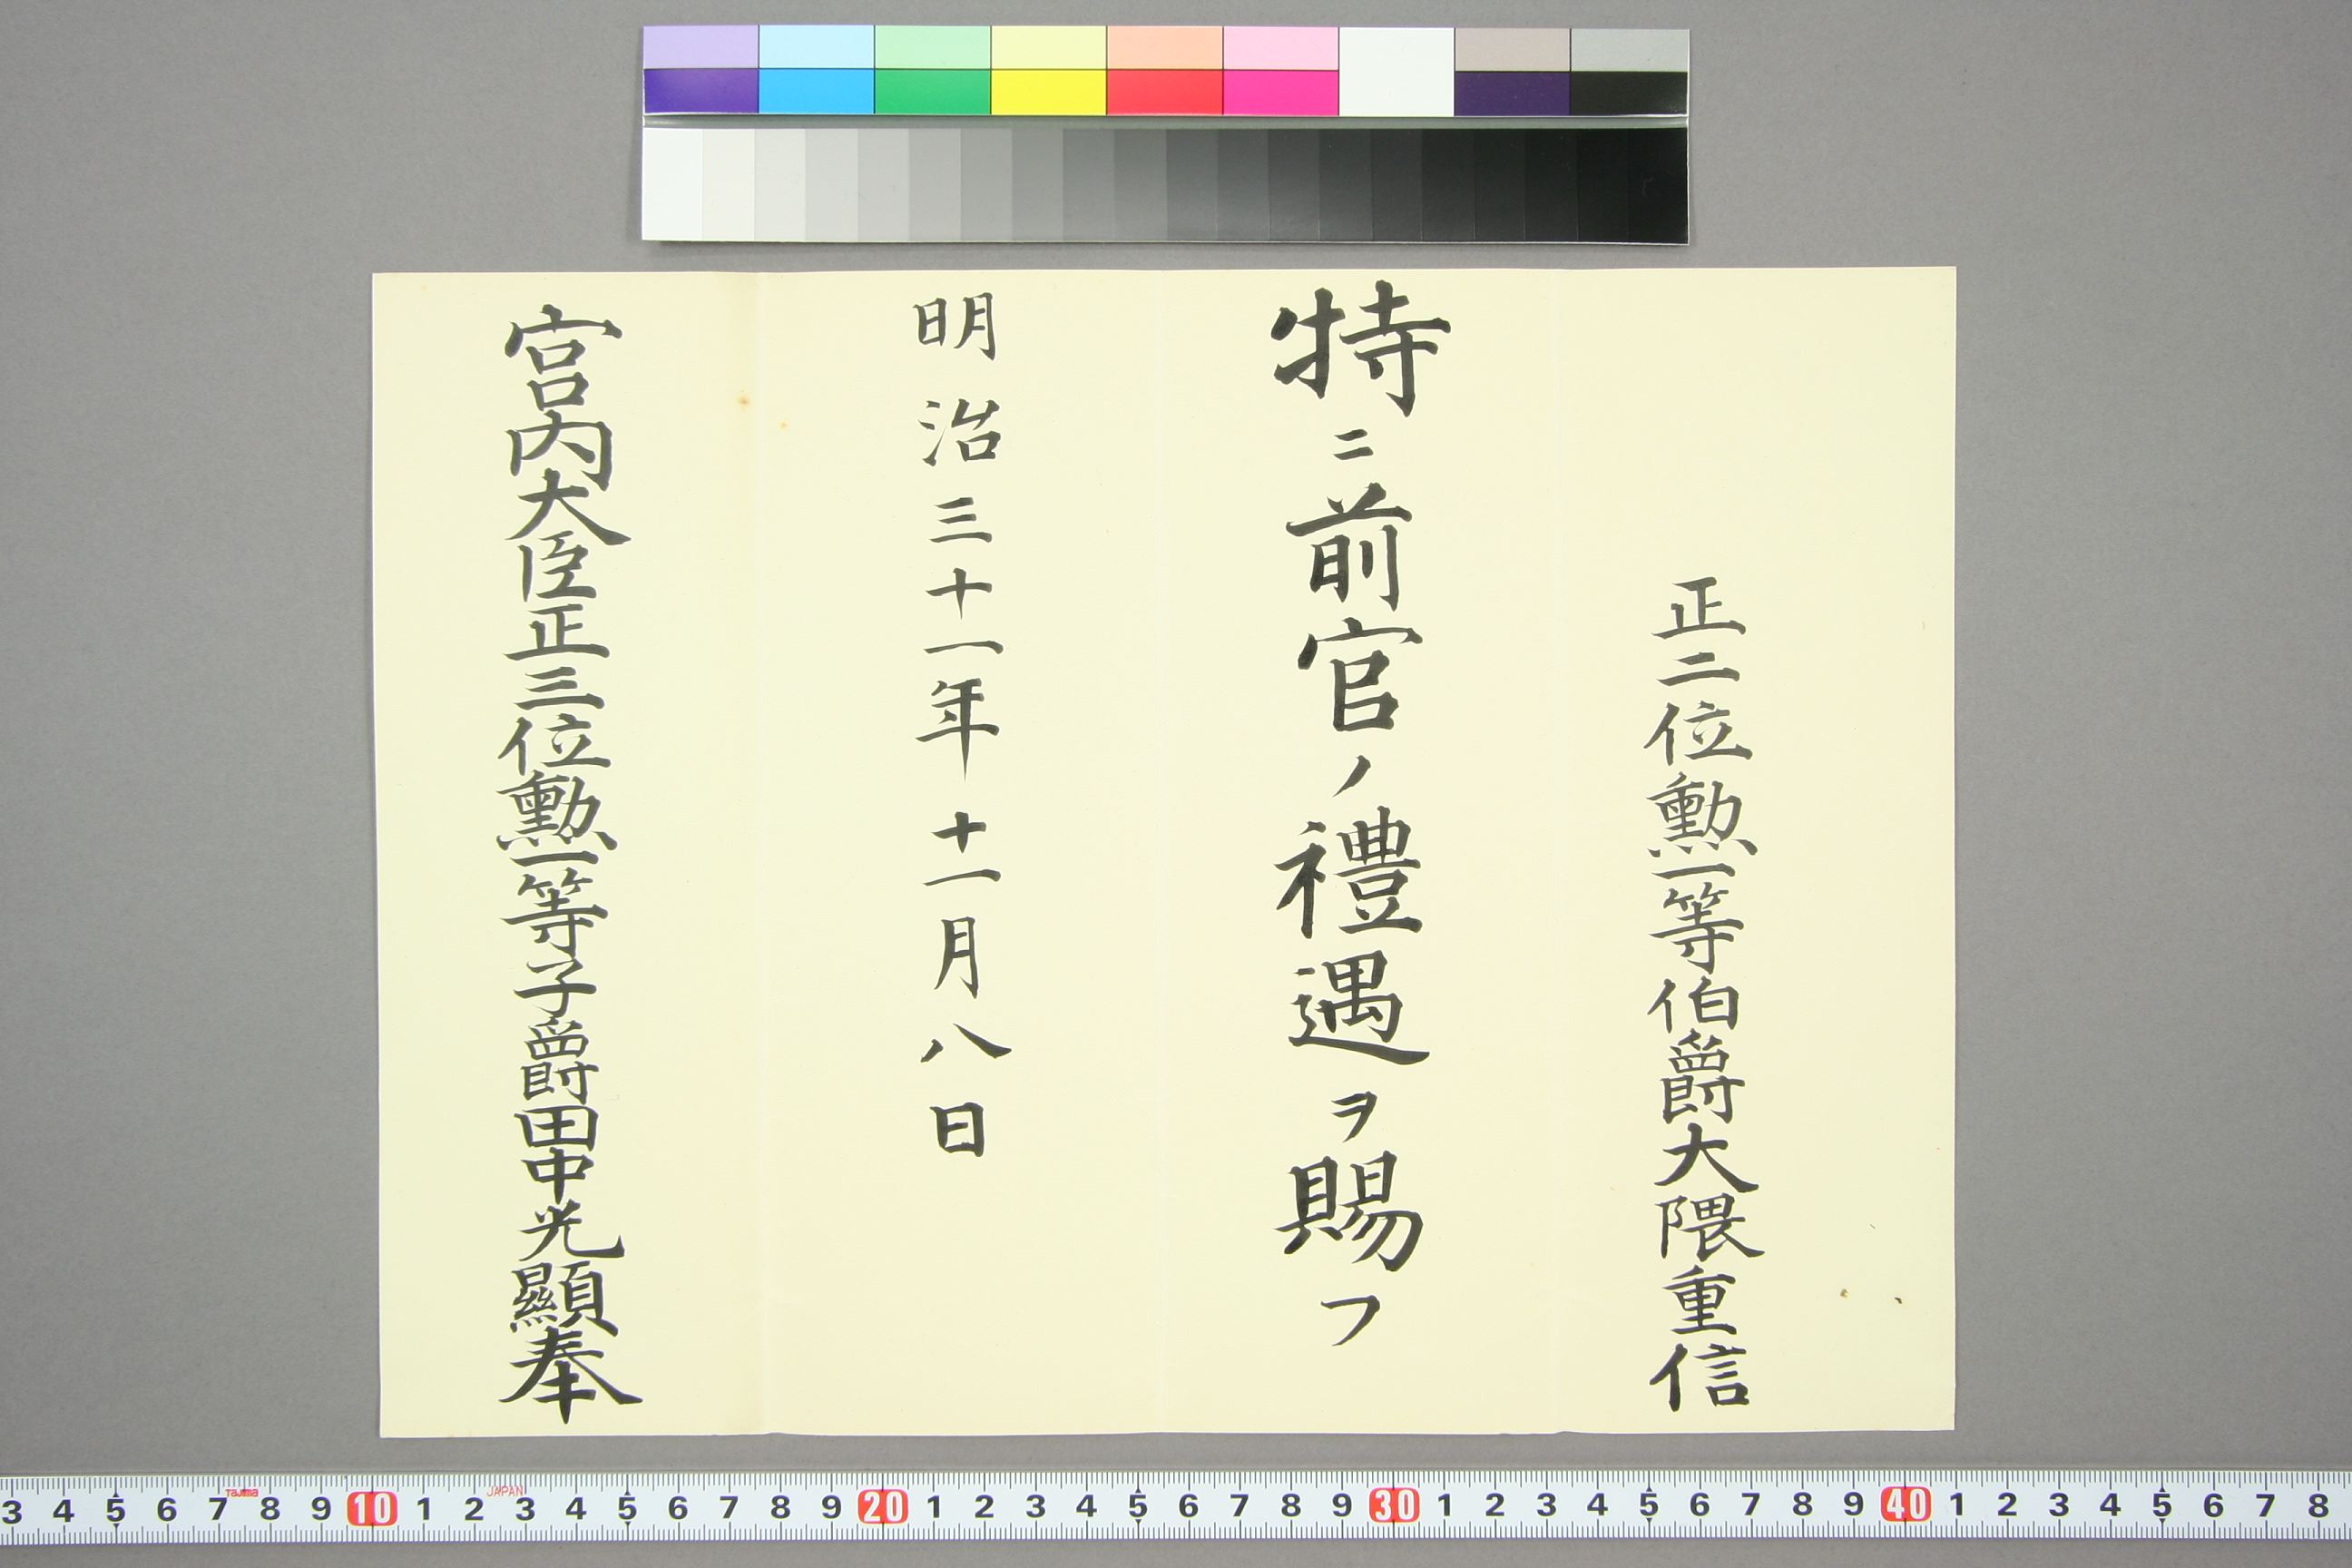 正二位勳一等伯爵大隈重信
特ニ前官ノ禮遇ヲ賜フ
明治三十一年十一月八日
宮内大臣正三位勳一等子爵田中光顯奉
3 4 5 6 7 8 9 10 1 2 3 4 5 6 7 8 9 20 1 2 3 4 5 6 7 8 9 30 1 2 3 4 5 6 7 8 9 40 1 2 3 4 5 6 7 8
Tajima JAPAN